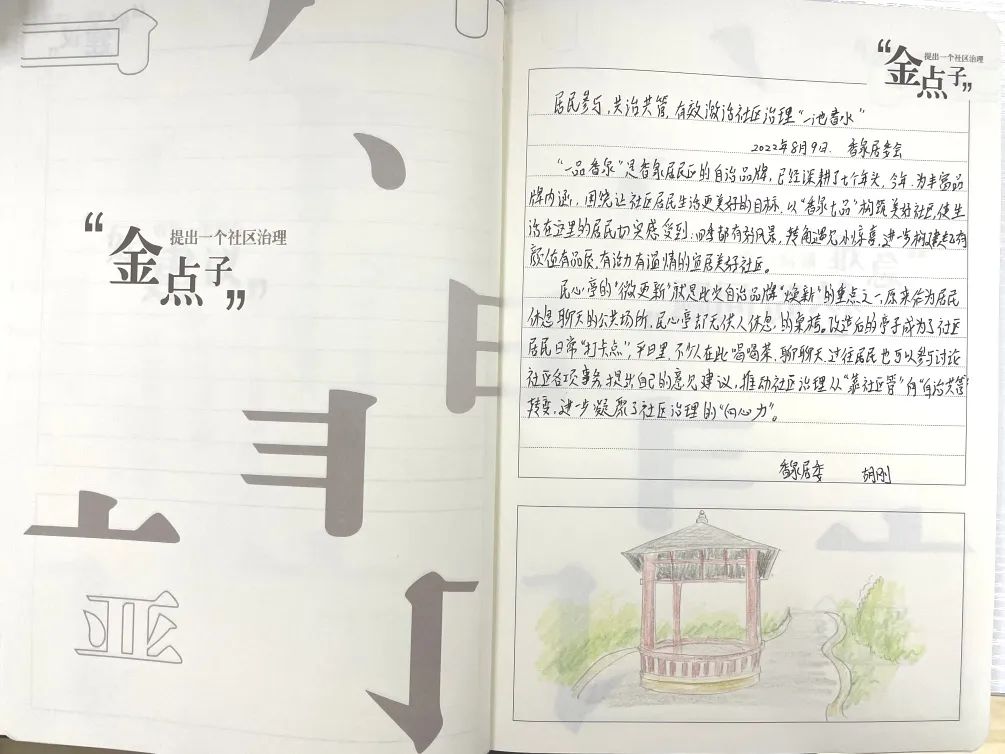 “金点子”
提出一个社区治理
“金点子”
提出一个社区治理
居民参与,共治共管,有效激活社区治理“一池春水”
2022年8月9日. 香泉居委会
“一品香泉”是香泉居民区的自治品牌,已经深耕了七个年头,今年,为丰富品
牌内涵,围绕让社区居民生活更美好的目标,以“香泉七品”构筑美好社区,使生
活在这里的居民切实感受到:四季都有好风景,转角遇见小惊喜,进一步构建起有
颜值有品质,有活力有温情的宜居美好社区。
民心亭的“微更新”就是此次自治品牌“焕新”的重点之一,原来作为居民
休息聊天的公共场所,民心亭却无供人休息,的桌椅。改造后的亭子成为了社区
居民日常“打卡点”,平日里,不少人在此喝喝茶,聊聊天,过往居民也可以参与讨论
社区各项事务,提出自己的意见建议,推动社区治理从“靠社区管”向“自治共管”
转变,进一步凝聚了社区治理的“向心力”。
香泉居委 胡刚